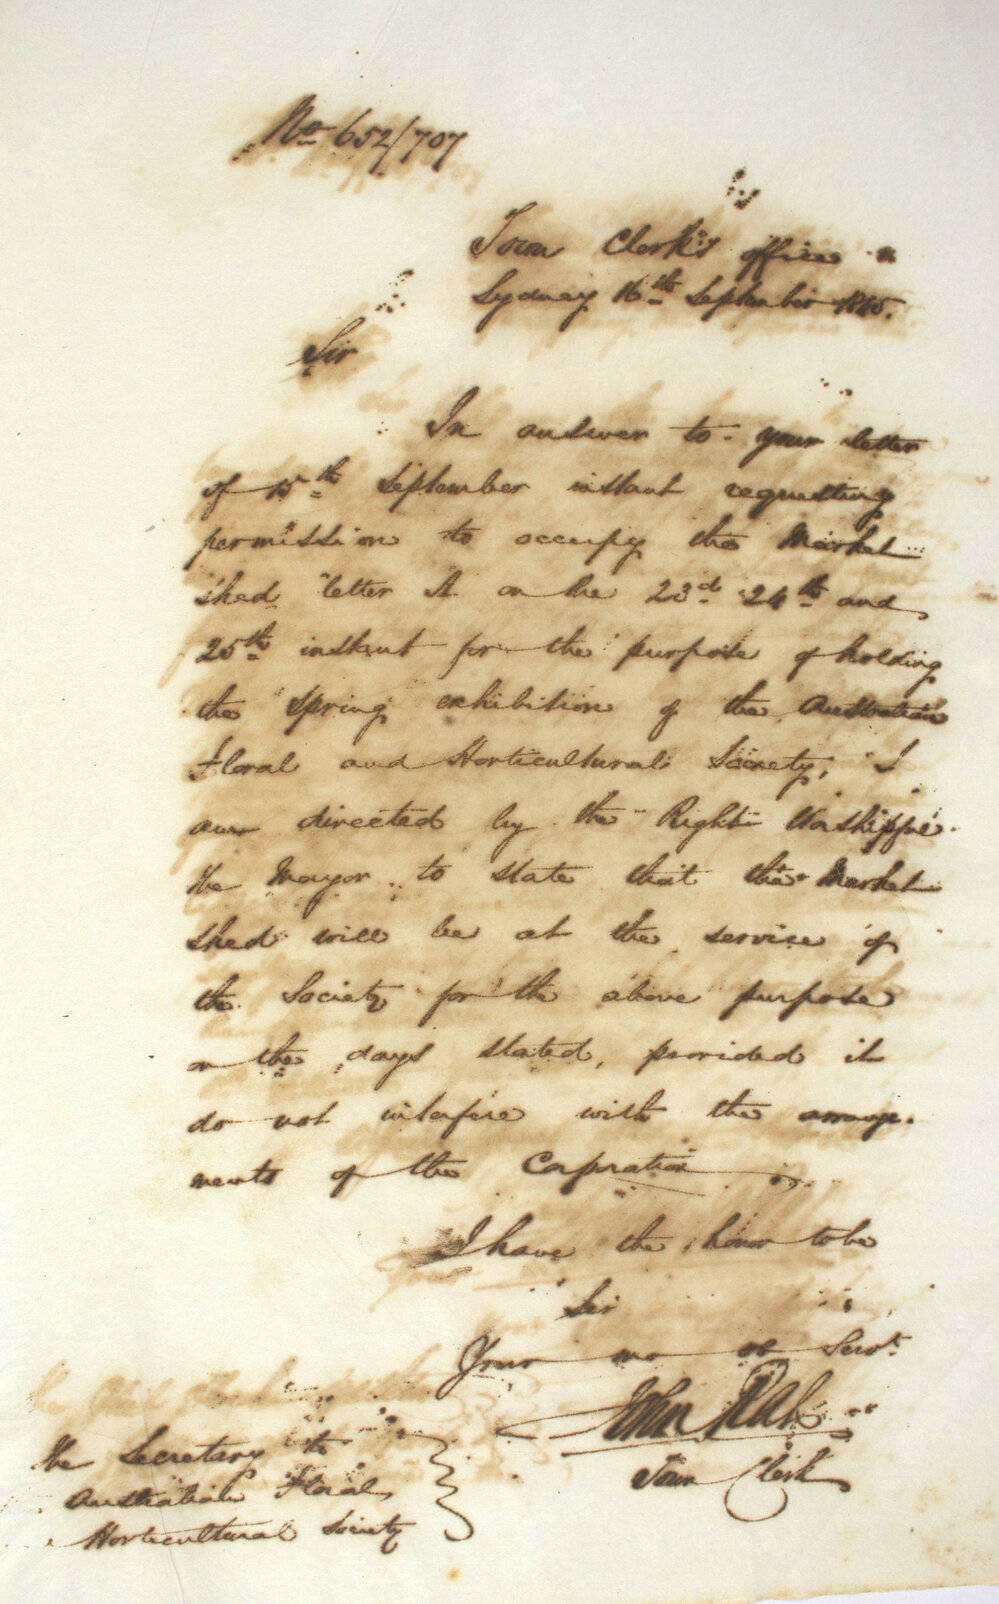 No 652/707
Town Clerk's office
Sydney 16th September 1845.
Sir
In answer to your letter
of 15th September instant requesting
permission to occupy the Market
shed letter A on the 23d 24th and
25th instant for the purpose of holding
the Spring exhibition of the Australian
Floral and Horticultural Society, I
am directed by the Right Worshipful
the Mayor to state that the Market
shed will be at the service of
the Society for the above purpose
on the days stated, provided it
do not interfere with the arrange-
ments of the Corporation
I have the honor to be
Sir
Your mo ob Servt
John Rae
Town Clerk
The Secretary to
Australian Floral,
Horticultural Society